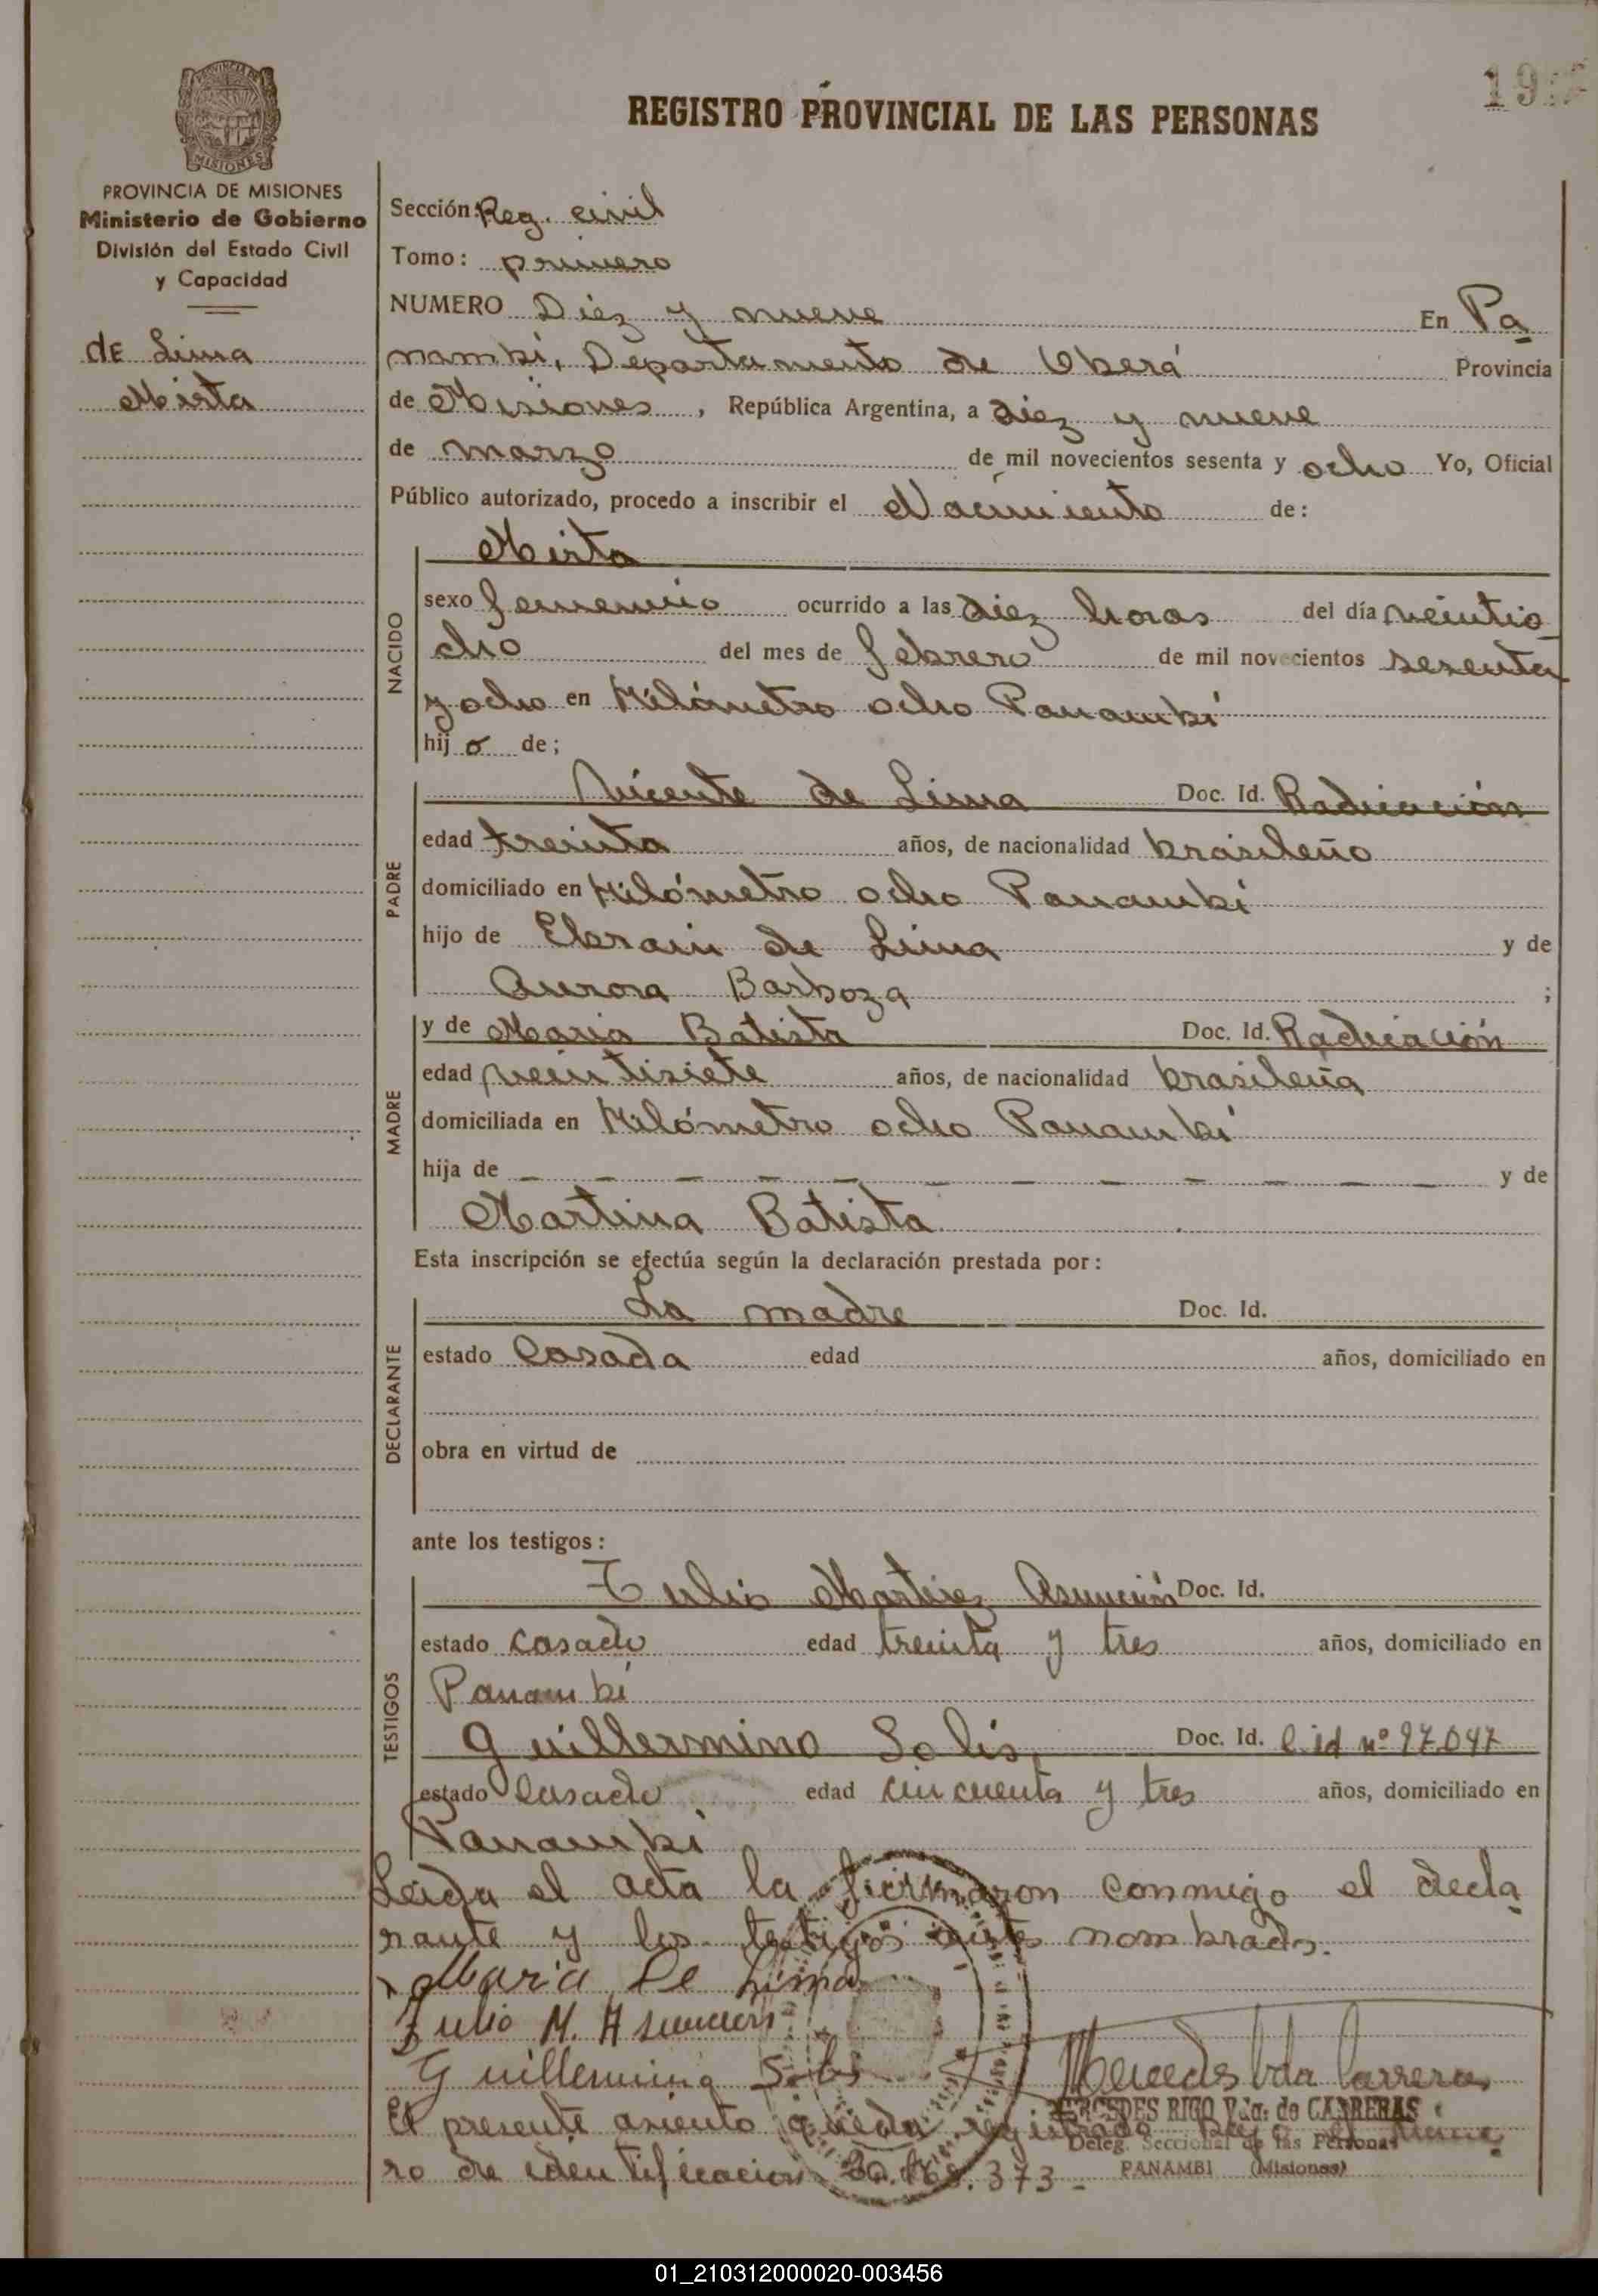 REGISTRO PROVINCIAL DE LAS PERSONAS
PROVINCIA DE MISIONES
Ministerio de Gobierno
División del Estado Civil
y Capacidad
de Lima
Mirta
Sección: Reg. civil
Tomo: primero
NUMERO Diez y nueve En Pa
nambí, Departamento de Oberá Provincia
de Misiones, República Argentina, a diez y nueve
de marzo de mil novecientos sesenta y ocho Yo, Oficial
Público autorizado, procedo a inscribir el Nacimiento de:
NACIDO
Mirta
sexo femenino ocurrido a las diez horas del día veintio
cho del mes de febrero de mil novecientos sesenta
y ocho en Kilómetro ocho Panambí
hijo de;
PADRE
Vicente de Lima Doc. Id. Radicación
edad treinta años, de nacionalidad brasileño
domiciliado en Kilómetro ocho Panambí
hijo de Ebrain de Lima y de
Aurora Barboza ;
MADRE
y de Maria Batista Doc. Id. Radicación
edad veintisiete años, de nacionalidad brasileña
domiciliada en Kilómetro ocho Panambí
hija de — — — — — — — — — — — y de
Martina Batista
Esta inscripción se efectúa según la declaración prestada por:
DECLARANTE
La madre Doc. Id.
estado Casada edad años, domiciliado en
obra en virtud de
ante los testigos:
TESTIGOS
Julio Martirez Asunción Doc. Id.
estado casado edad treinta y tres años, domiciliado en
Panambí
Guillermino Solis, Doc. Id. C id nº 97.047
estado Casado edad cincuenta y tres años, domiciliado en
Panambí
Leída el acta la firmaron conmigo el decla
rante y los testigos antes nombrados.
Maria De Lima
Julio M. Asuncion
Guillermino Solis
Mercedes Vda Carreras
El presente asiento queda registrado bajo el núme
ro de identificacion 20.468.373-
MERCEDES RIGO Vda. de CARRERAS
Deleg. Seccional de las Personas
PANAMBI (Misiones)
01_210312000020-003456